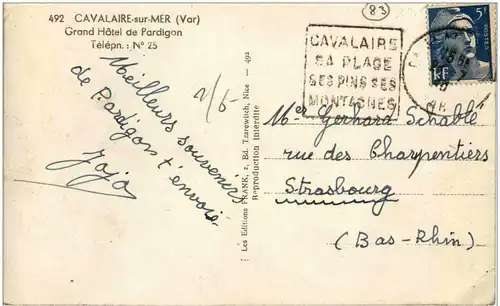 492 CAVALAIRE-sur-MER (Var)
Grand Hôtel de Pardigon
Télépn.: N° 25
83
CAVALAIRE
SA PLAGE
SES PINS SES
MONTAGNES
5F
POSTES
RF
Meilleurs souvenirs
de Pardigon t'envoie
Jojo
Les Editions FRANK, 2, Bd. Tzarewitch, Nice - 492
Reproduction Interdite
Gerhard Schable
rue des Charpentiers
Strasbourg
(Bas-Rhin)